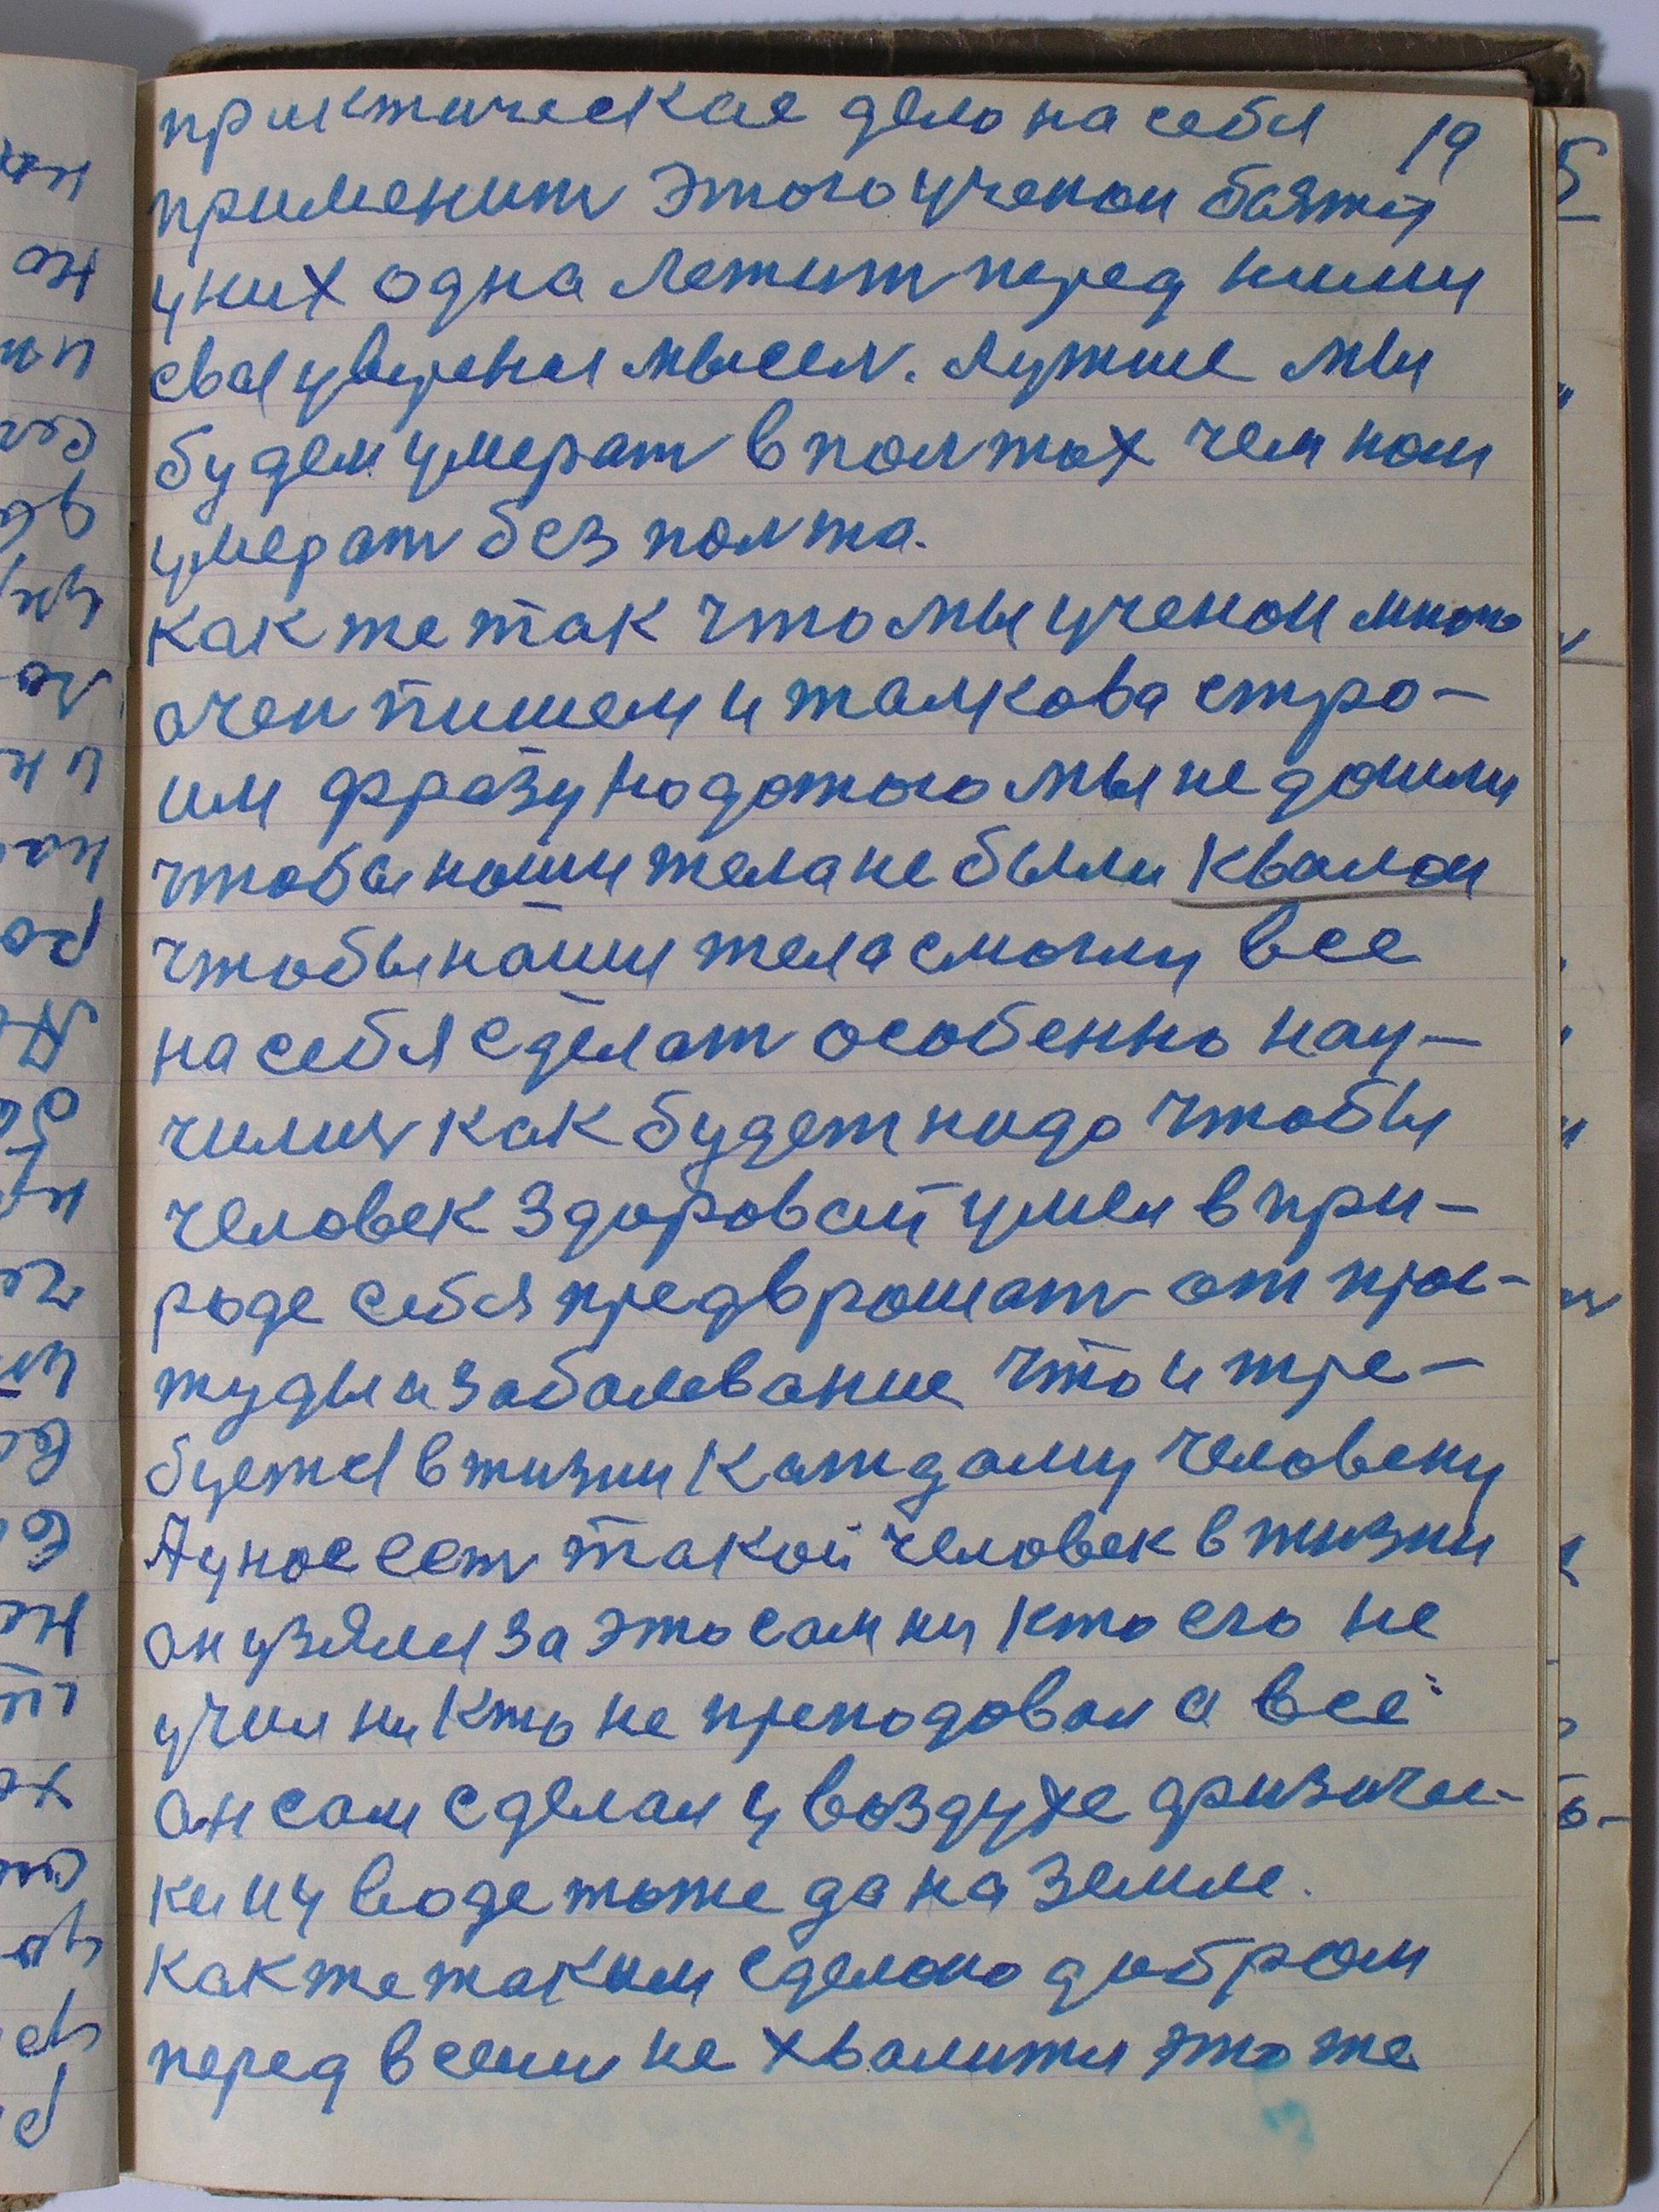 практическае дело на себя 19
применит этого ученаи баятця
у них одна лежит перед ними
свая увереная мысел. Лутше мы
будем умерат в полтах чем нам
умерат без полта.
как же так что мы ученаи много
очен пишем и талкова стро-
им фразу но до того мы не дошли
чтобы наши тела не были квалаи
чтобы наши тела смогли все
на себя сделат особенно нау-
чился как будет надо чтобы
человек здоровай умел в при-
роде себя предврашат от прас-
туды и заболевание что и тре-
буется в жизни каждаму человеку
А у нас ест такой человек в жизни
он узялся за это сам ни кто его не
учил ни кто не преподовал а всё
он сам сделал у воздухе физичес-
ки и у воде тоже да на земле.
как же таким сделоно добром
перед всеми не хвалится это же